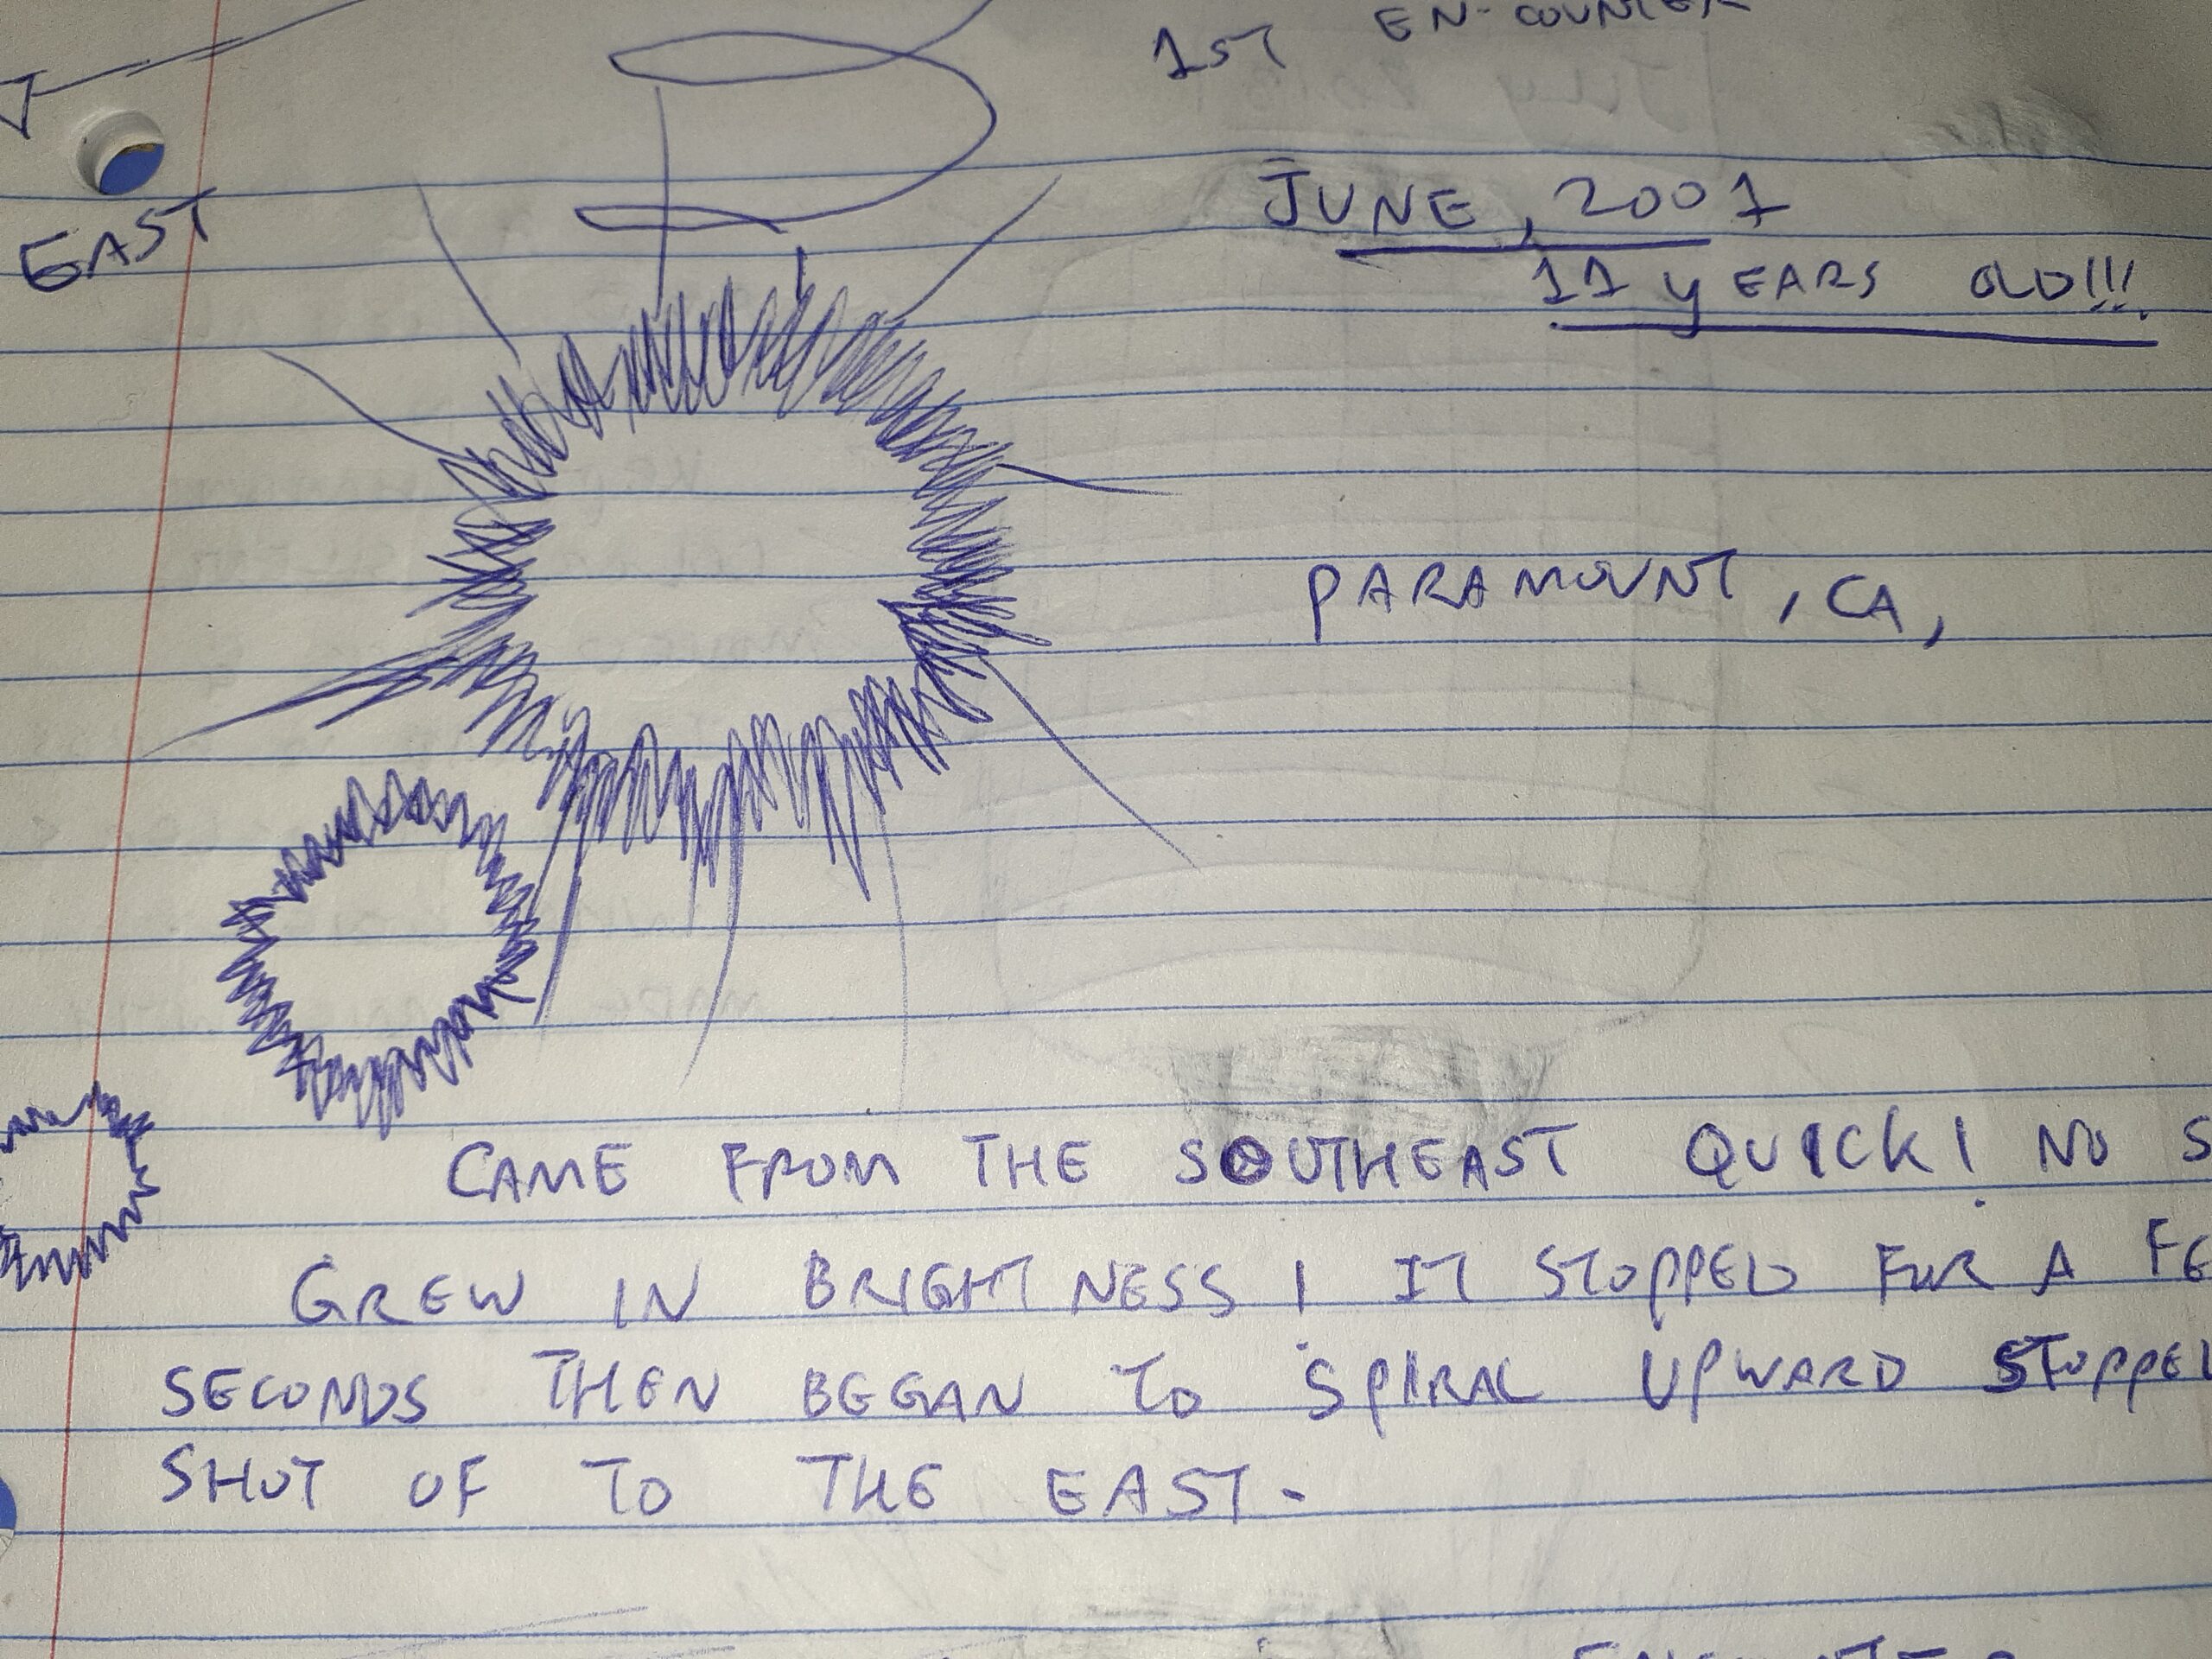 1ST EN-COUNTER
EAST
JUNE, 2001
11 YEARS OLD!!!
PARAMOUNT, CA,
CAME FROM THE SOUTHEAST QUICK! NO S
GREW IN BRIGHTNESS! IT STOPPED FOR A FE
SECONDS THEN BEGAN TO SPIRAL UPWARD STOPPED
SHOT OF TO THE EAST.